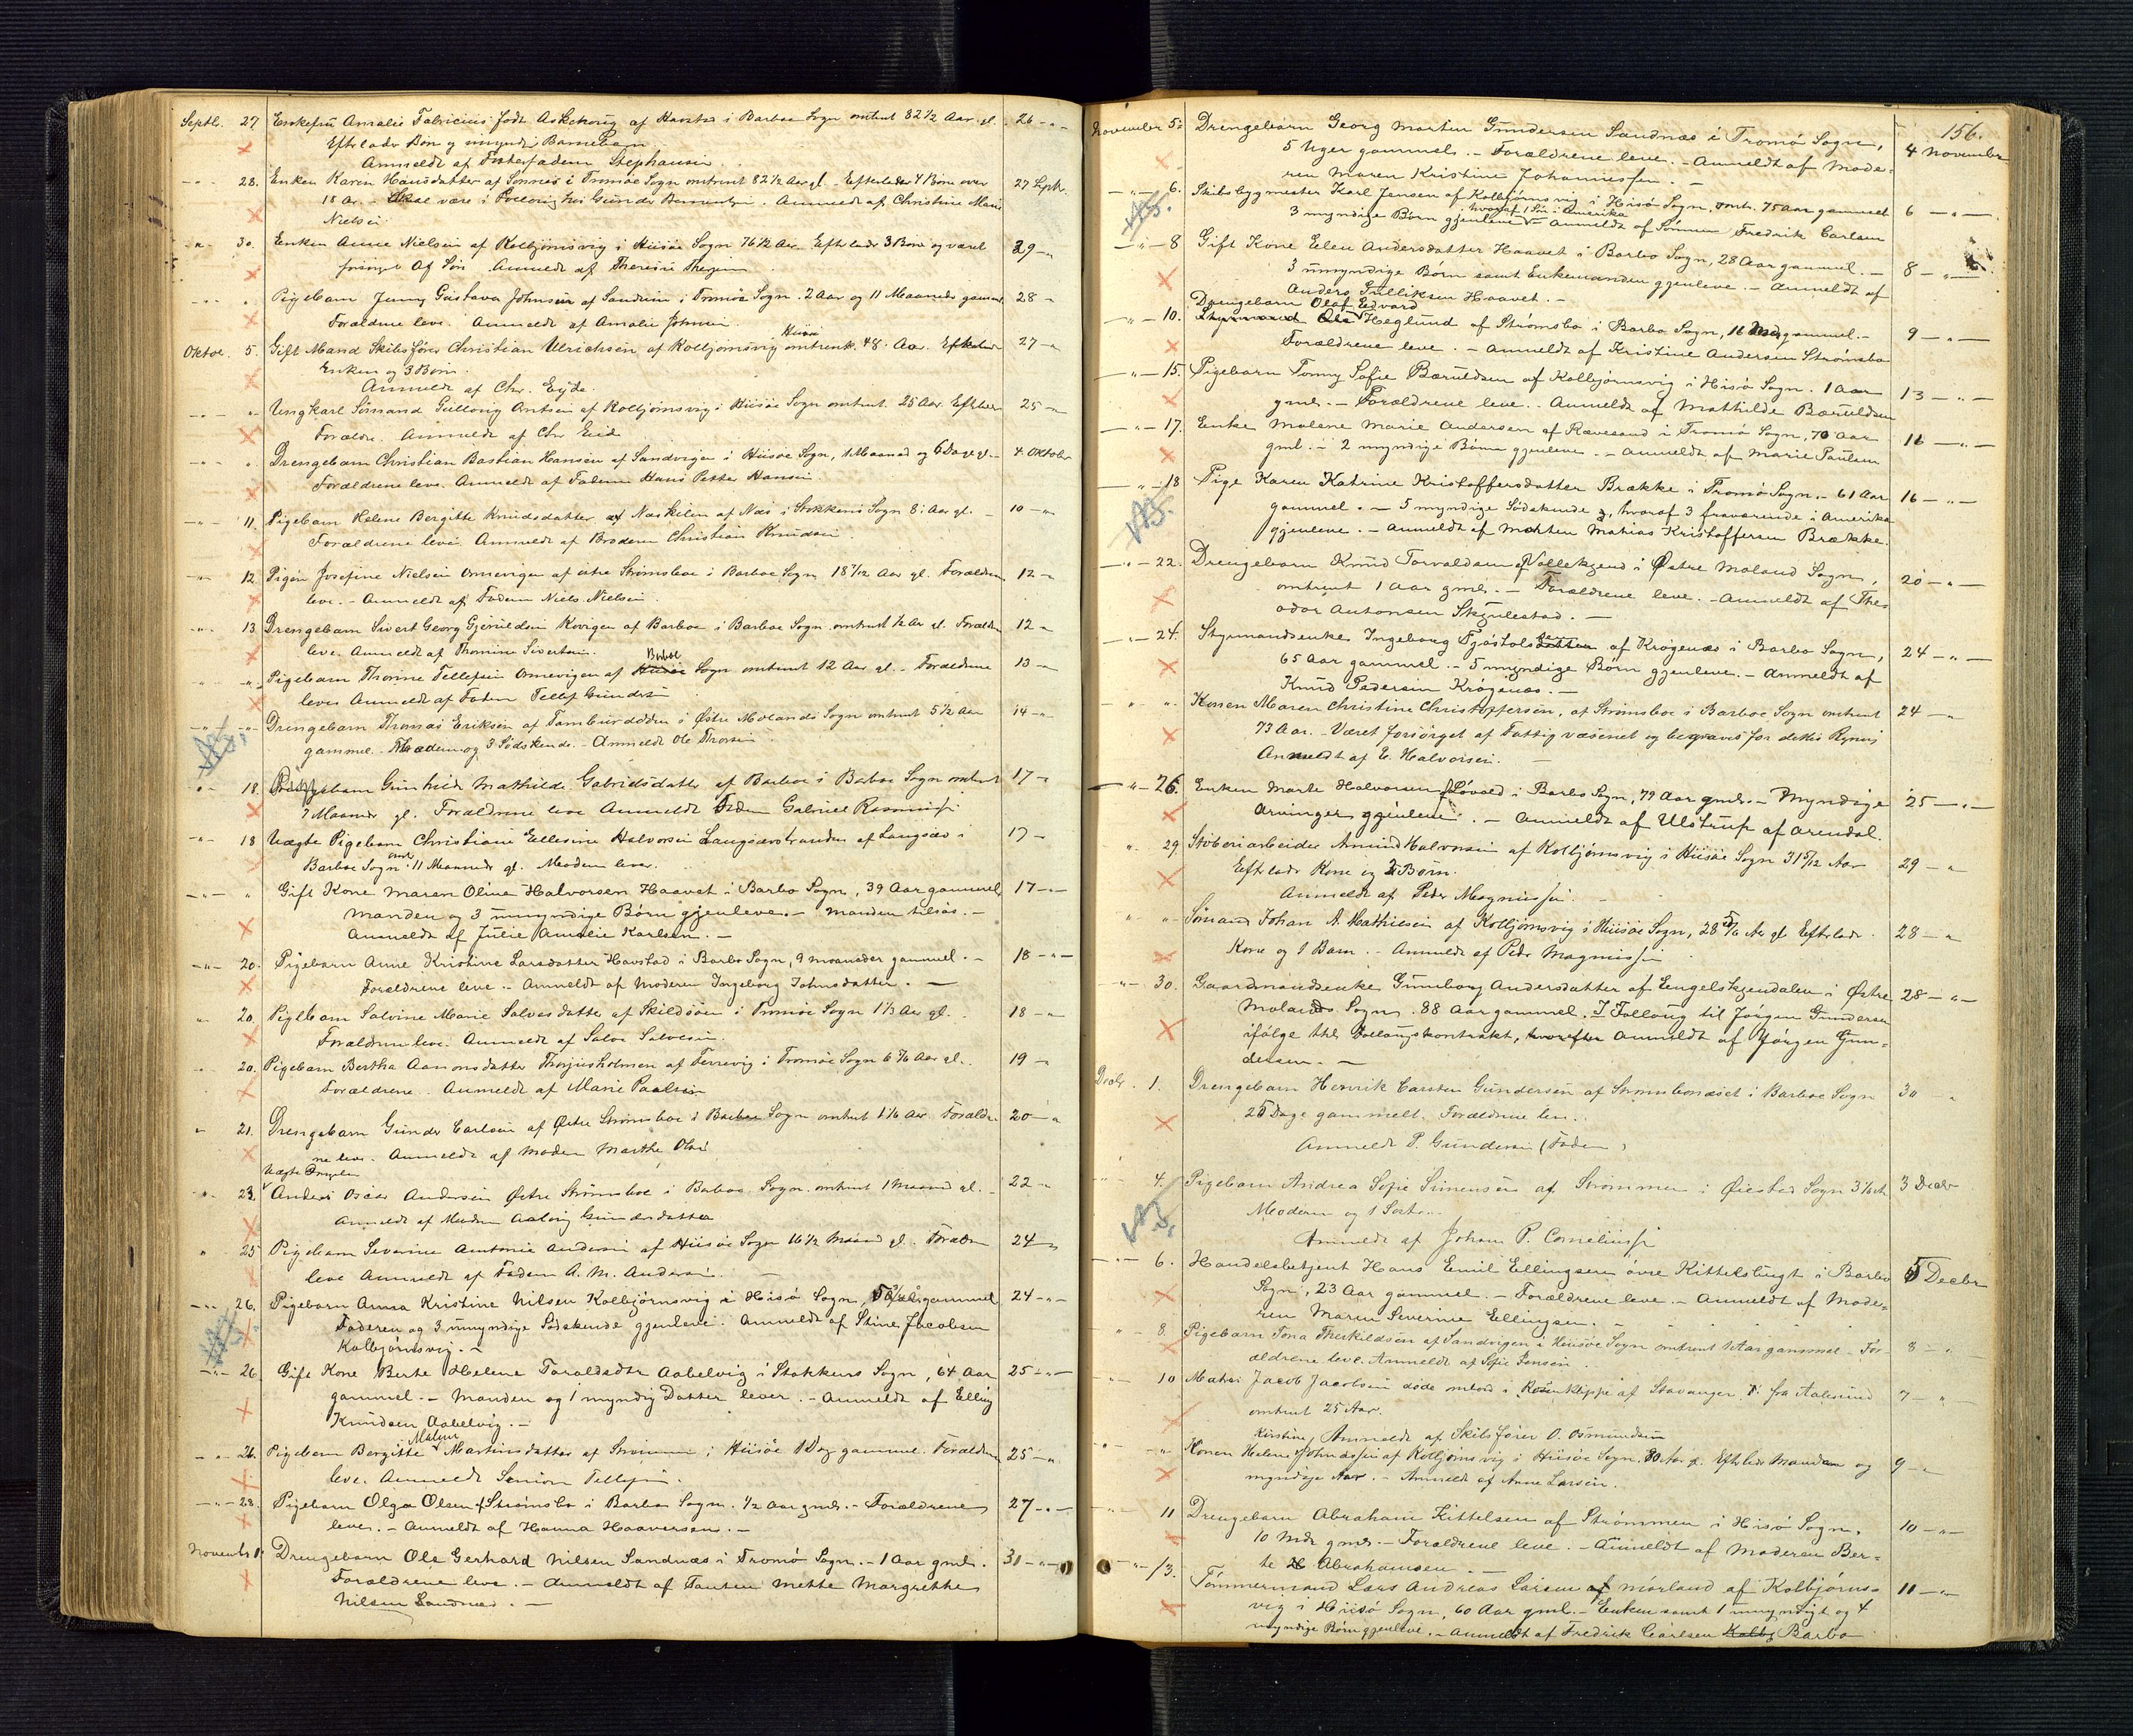 Septb. 27 Enkefru Amalie Fabricius født Askekorig af Havstad i Barboe Sogn omtrent 82 1/2 Aar gl. 26 - " -
Efterlader Børn og umyndig Barnebarn
Anmeldt af Stephansen
- " - 28. Enken Karen Hansdatter af Sønnes i Tromøe Sogn omtrent 82 1/2 Aar gl. - Efterlader 4 Børn over 27 Septr.
18 Aar. - Skal være i Follaug hos Gunder Berntsen. Anmeldt af Christine Marie
Nielsen
- " - 30. Enken Anne Nielsen af Kolbjørnsvig i Hiisøe Sogn 76 1/2 Aar. Efterlader 3 Børn og været 29 - "
forsørget af Søn Anmeldt af Therese Thorjusen
" - " Pigebarn Jenny Gustava Johnsen af Sandum i Tromøe Sogn. 2 Aar og 11 Maaneder gammel 28 -
Forældrene leve. Anmeldt af Amalie Johnsen
Hiisøe
Oktbr. 5. Gift Mand Skibsfører Christian Ulrichsen af Kolbjørnsvig omtrent 48 Aar. Efterlader 27 - "
Enken og 3 Børn.
Anmeldt af Chr. Eyde.
- " - " Ungkarl Sømand Gullong Antsen af Kolbjørnsvig i Hiisøe Sogn omtrent 25 Aar Efterlader 25 - "
Forældre. Anmeldt af Chr Eide
- " - " Drengebarn Christian Bastian Hansen af Sandvigen i Hiisøe Sogn, 1 Maaned og 6 Dage gl - 4 Oktober
Forældrene leve. Anmeldt af Faderen Hans Petter Hansen.
- " - 11. Pigebarn Helene Bergitte Knudsdatter af Næskilen af Næs i Stokkens Sogn 8 Aar gl. - 10 - "
Forældrene leve. Anmeldt af Broderen Christian Knudsen.
- " - 12. Pigen Josefine Nielsen Omrevigen af østre Strømsboe i Barboe Sogn 18 7/12 Aar gl. Forældrene 12 - "
leve. - Anmeldt af Faderen Niels Nielsen.
- " - 13 Drengebarn Sivert Georg Gjeruldsen Kovigen af Barboe i Barboe Sogn omtrent 1/2 Aar gl. Forældrene 12 - "
leve. Anmeldt af Thomine Sivertsen.
Barboe
" - " Pigebarn Thomine Tellefsen Omrevigen af Hiisøe Sogn omtrent 12 Aar gl. - Forældrene 13 - "
leve. Anmeldt af Faderen Tellef Gundersen
" - " Drengebarn Thomas Eriksen af Tamburodden i Østre Molands Sogn omtrent 5 1/2 Aar 14 - "
gammel. - Moderen og 3 Sødskende. - Anmeldt Ole Thorsen
" - 18. Pigebarn Gunhild Mathilde Gabrielsdatter af Barboe i Barboe Sogn omtrent 17 - "
7 Maaneder gl. Forældrene leve Anmeldt Faderen Gabriel Rasmussen
- " - 18 Uægte Pigebarn Christiane Ellesine Halvorsen Langsævstranden af Langsæv i 17 -
Barboe Sogn omt. 11 Maaneder gl. Moderen lever.
- " - " Gift Kone Maren Oline Halvorsen Haavet i Barbo Sogn, 39 Aar gammel 17 - " -
Manden og 3 umyndige Børn gjenleve. - Manden tilsøs. -
Anmeldt af Julie Amalie Karlsen. -
- " - 20. Pigebarn Anne Kristine Larsdatter Havstad i Barbo Sogn, 9 maaneder gammel. - 18 - " -
Forældrene leve - Anmeldt af Moderen Ingeborg Johnsdatter. -
" - 20. Pigebarn Salvine Marie Salvesdatter af Skildsøen i Tromøe Sogn 1 1/3 Aar gl. 18 - "
Forældrene leve. Anmeldt af Salve Salvesen.
- 20. Pigebarn Bertha Aanonsdatter Thorjusholmen af Fervevig i Tromøe Sogn 6 7/12 Aar gl. 19 - "
Forældrene. Anmeldt af Marie Paulsen
" - 21. Drengebarn Gunder Carlsen af Østre Strømsboe i Barboe Sogn omtrent 1 1/6 Aar. Forældre- 20 - "
ne leve. Anmeldt af Moderen Marthe Olsen
Uægte Drengebarn
- " - 23. Anders Oscar Andersen Østre Strømsboe i Barboe Sogn. omtrent 1 Maaned gl. 22 - "
Anmeldt af Moderen Aaslaug Gundersdatter
" - 25 Pigebarn Severine Antonie Andersen af Hiisøe Sogn 16 1/2 Maaned gl. Forældre 24 - "
leve Anmeldt af Faderen A. M. Andersen. -
- " - 26. Pigebarn Anna Kristine Nilsen Kolbjørnsvig i Hisø Sogn, gammel 24 - " -
Faderen og 3 umyndige Sødskende gjenleve. Anmeldt af Stine Jacobsen
Kolbjørnsvig. -
- " - 26. Gift Kone Berte Helene Taraldsdtr Aabelvig i Stokkens Sogn, 64 Aar 25 - " -
gammel. - Manden og 1 myndig Datter lever. - Anmeldt af Elling
Knudsen Aabelvig. -
Malene
- " - 26. Pigebarn Bergitte Martinsdatter af Strømmen i Hiisøe 1 Dag gammel. Forældrene 25 - " -
leve. Anmeldt Simon Tellefsen.
- " - 28. Pigebarn Olga Olsen af Strømsbo i Barbo Sogn. 1/2 Aar gml. - Forældrene 27 - " -
lever. - Anmeldt af Hanna Haaversen. -
November 1. Drengebarn Ole Gerhard Nilsen Sandnæs i Tromø Sogn. - 1 Aar gml. 31 - " -
Forældrene leve. - Anmeldt af Tanten Mette Margrethe
Nilsen Sandnæs. -
156.
November 5. Drengebarn Georg Martin Gundersen Sandnæs i Tromø Sogn, 4 November
5 Uger gammel. - Forældrene leve. - Anmeldt af Mode-
ren Maren Kristine Johannessen. -
- " - 6. Skibsbygmester Karl Jensen af Kolbjørnsvig i Hisø Sogn, omtr. 75 Aar gammel 6 - " -
hvoraf 1 Søn i Amerika
3 myndige Børn gjenleve - Anmeldt af Sønnen Fredrik Carlsen
- " - 8 Gift Kone Elen Andersdatter Haavet i Barbo Sogn, 28 Aar gammel. - 8 - " -
3 umyndige Børn samt Enkemanden gjenleve. - Anmeldt af
Anders Gulliksen Haavet. -
Drengebarn Olaf Edvard
- " - 10. Heglund af Strømsbo i Barbo Sogn, 16 Mdr gammel. - 9 - " -
Forældrene leve. - Anmeldt af Kristine Andersen Strømsbo
- " - 15. Pigebarn Tonny Sofie Bæruldsen af Kolbjørnsvig i Hisø Sogn. 1 Aar 13 - " -
gml. - Forældrene leve. - Anmeldt af Mathilde Bæruldsen
- " - 17. Enke Malene Marie Andersen af Rævesand i Tromø Sogn, 70 Aar 16 - " -
gml. - 2 myndige Børn gjenleve. - Anmeldt af Marie Paulsen
- " - 18 Pige Karen Katrine Kristoffersdatter Brække i Tromø Sogn. - 61 Aar 16 - " -
gammel. - 5 myndige Sødskende, hvoraf 3 fraværende i Amerika
gjenleve. - Anmeldt af Morten Mathias Kristoffersen Brække.
- " - 22. Drengebarn Knud Torvaldsen af Vollekjend i Østre Moland Sogn, 20 - " -
omtrent 1 Aar gml. - Forældrene leve. - Anmeldt af The-
odor Antonsen Skjulestad. -
- " - 24. Styrmandsenke Ingeborg Fjøstolsdatter af Krøgenæs i Barbo Sogn, 24 - " -
65 Aar gammel. - 5 myndige Børn gjenleve. - Anmeldt af
Knud Pedersen Krøgenæs. -
" - " - Konen Maren Christine Christoffersen, af Strømsboe i Barboe Sogn omtrent 24 - "
73 Aar. - Været forsørget af Fattigvæsenet og begraves for dettes Regning
Anmeldt af E. Halvorsen. -
- " - 26. Enken Marte Halvorsen af Løvold i Barbo Sogn, 79 Aar gml. - Myndige 25 - " -
Arvinger gjenleve. - Anmeldt af Ulstrup af Arendal.
" - 29. Støberiarbeider Amund Halvorsen af Kolbjørnsvig i Hiisøe Sogn 31 5/12 Aar 29 - "
Efterlader Kone og 2 Børn.
Anmeldt af Peder Magnussen. -
" - " - Sømand Johan A. Mathiesen af Kolbjørnsvig i Hiisøe Sogn, 28 5/6 Aar gl Efterlader 28 - "
Kone og 1 Barn. - Anmeldt af Peder Magnussen
- " - 30. Gaardmandsenke Gunborg Andersdatter af Engelskjendalen i Østre 28 - " -
Molands Sogn. 88 Aar gammel. I Follaug til Jørgen Gundersen
ifølge thl. Follaugskontrakt, hvorefter Anmeldt af Jørgen Gun-
dersen. -
Decbr. 1. Drengebarn Henrik Carsten Gundersen af Strømsbonæset i Barboe Sogn 30 "
25 Dage gammelt. Forældrene leve.
Anmeldt P. Gundersen (Faderen)
" 4. Pigebarn Andrea Sofie Simensen af Strømmen i Øiestad Sogn 3 1/2 Aar 3 Decbr
Moderen og 1 Søster.
Anmeldt af Johan P. Corneliussen
- " - 6. Handelsbetjent Hans Emil Ellingsen øvre Kittelsbugt i Barbo 5 Decbr
Sogn, 23 Aar gammel. - Forældrene leve. - Anmeldt af Mode-
ren Maren Severine Ellingsen. -
" - 8. Pigebarn Tona Therkildsen af Sandvigen i Hiisøe Sogn omtrent 1 Aar gammel - For- 8 - " -
ældrene leve. Anmeldt af Sofie Jensen.
" - 10 Matros Jacob Jacobsen døde ombord i Rosenklippe af Stavanger fra Aalesund 7 - "
omtrent 25 Aar.
Anmeldt af Skibsfører O. Osmundsen
Kirstine
" - " Konen Helene Johnsdsen af Kolbjørnsvig i Hiisøe Sogn. 80 Aar gl. Efterlader Manden og 9 - "
myndige Arv. - Anmeldt af Anne Larsen.
11 Drengebarn Abraham Kittelsen af Strømmen i Hisø Sogn, 10 - " -
10 Mdr gml. - Forældrene leve. - Anmeldt af Moderen Ber-
te Abrahamsen. -
- " - 13. Tømmermand Lars Andreas Larsen af Mørland af Kolbjørns- 11 - " -
vig i Hiisø Sogn, 60 Aar gml. - Enken samt 1 umyndigt og 4
myndige Børn gjenleve. - Anmeldt af Fredrik Carlsen Kolbj Barbo